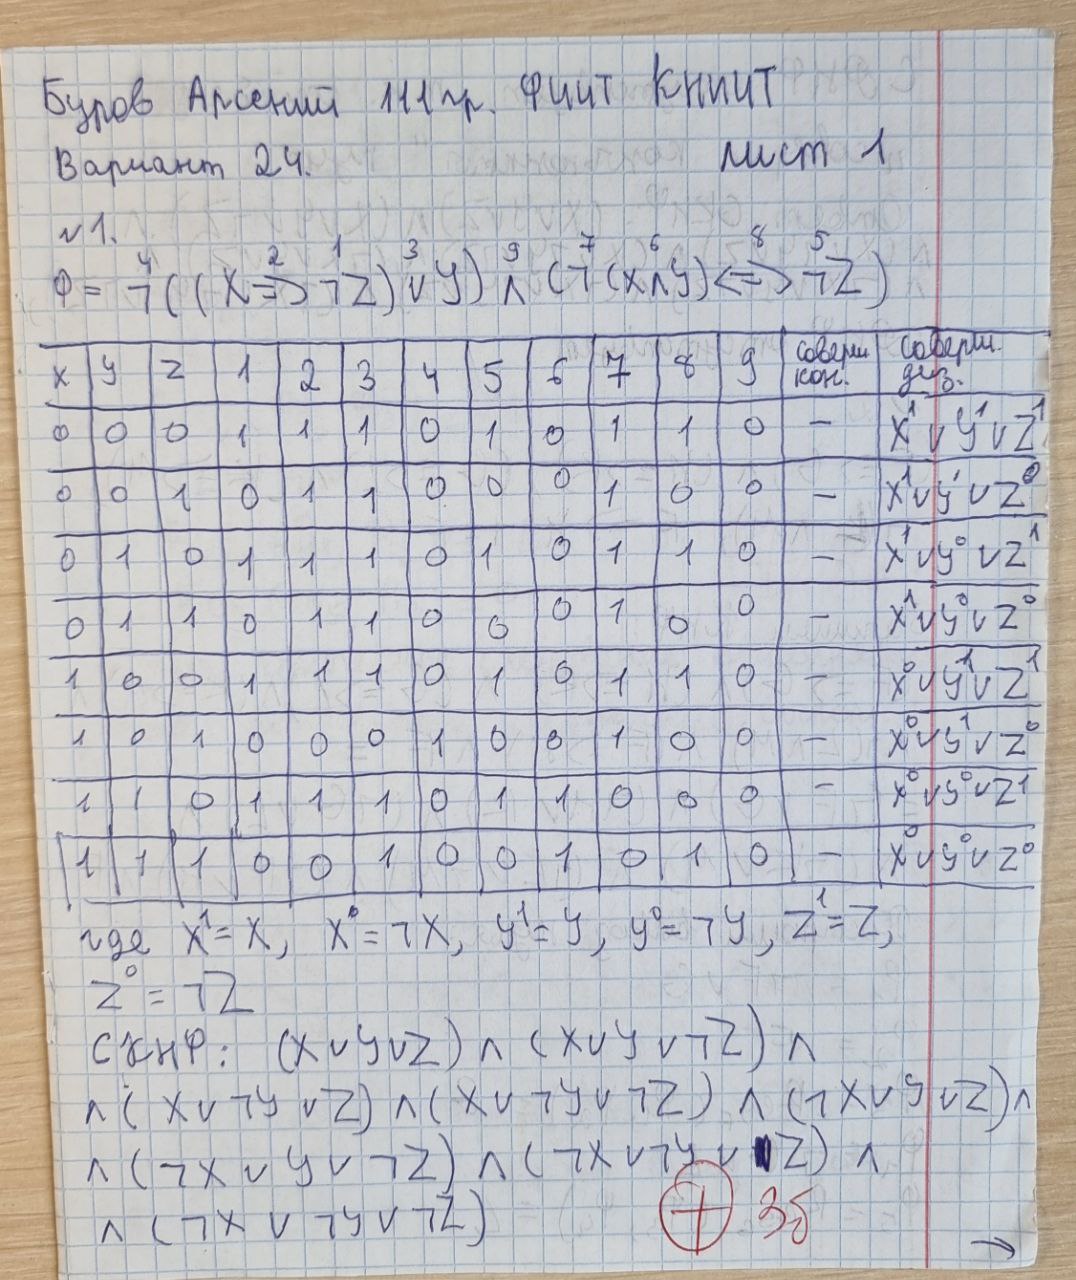 Буров Арсений 111гр. ФИИТ КНИИТ
Вариант 24. лист 1
№1.
4 2 1 3 9 7 6 8 5
Ф = ¬((X=>¬Z)∨Y)∧(¬(X∧Y)<=>¬Z)
X Y Z 1 2 3 4 5 6 7 8 9 соверш. кон. соверш. диз.
0 0 0 1 1 1 0 1 0 1 1 0 – X¹∨Y¹∨Z¹
0 0 1 0 1 1 0 0 0 1 0 0 – X¹∨Y¹∨Z⁰
0 1 0 1 1 1 0 1 0 1 1 0 – X¹∨Y⁰∨Z¹
0 1 1 0 1 1 0 0 0 1 0 0 – X¹∨Y⁰∨Z⁰
1 0 0 1 1 1 0 1 0 1 1 0 – X⁰∨Y¹∨Z¹
1 0 1 0 0 0 1 0 0 1 0 0 – X⁰∨Y¹∨Z⁰
1 1 0 1 1 1 0 1 1 0 0 0 – X⁰∨Y⁰∨Z¹
1 1 1 0 0 1 0 0 1 0 1 0 – X⁰∨Y⁰∨Z⁰
где X¹=X, X⁰=¬X, Y¹=Y, Y⁰=¬Y, Z¹=Z,
Z⁰=¬Z
СКНФ: (X∨Y∨Z)∧(X∨Y∨¬Z)∧
∧(X∨¬Y∨Z)∧(X∨¬Y∨¬Z)∧(¬X∨Y∨Z)∧
∧(¬X∨Y∨¬Z)∧(¬X∨¬Y∨Z)∧
∧(¬X∨¬Y∨¬Z)
+ 3б
→